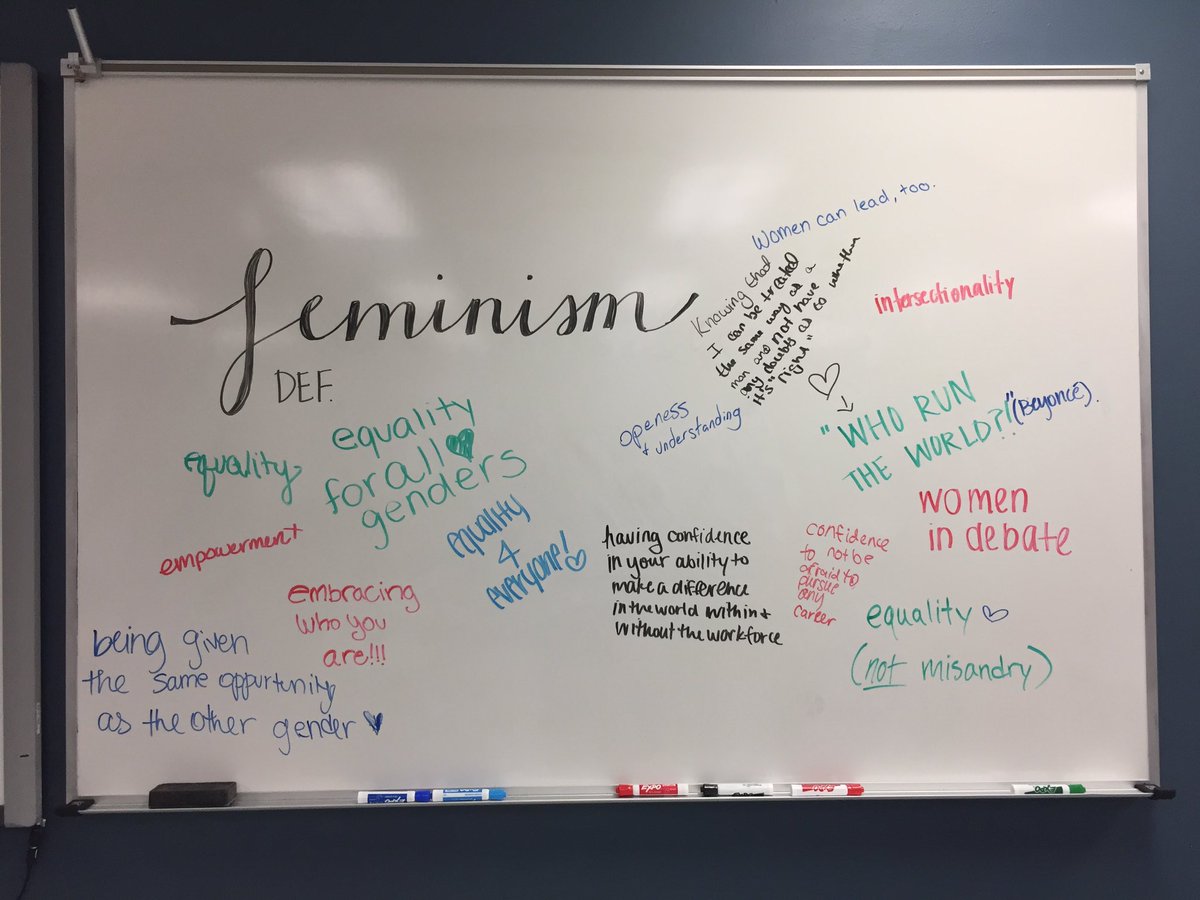 feminism
DEF.
Women can lead, too.
Knowing that
I can be treated
the same way as a
man and not have
any doubts as to whether
it's "right"
intersectionality
openess
+ understanding
"WHO RUN
THE WORLD?!"
(Beyoncé).
equality
equality
for all
genders
empowerment
equality
4
everyone!
embracing
who you
are!!!
being given
the same oppurtunity
as the other gender
having confidence
in your ability to
make a difference
in the world within +
without the workforce
confidence
to not be
afraid to
pursue
any
career
women
in debate
equality
(not misandry)
EXPO
EXPO
EXPO
EXPO